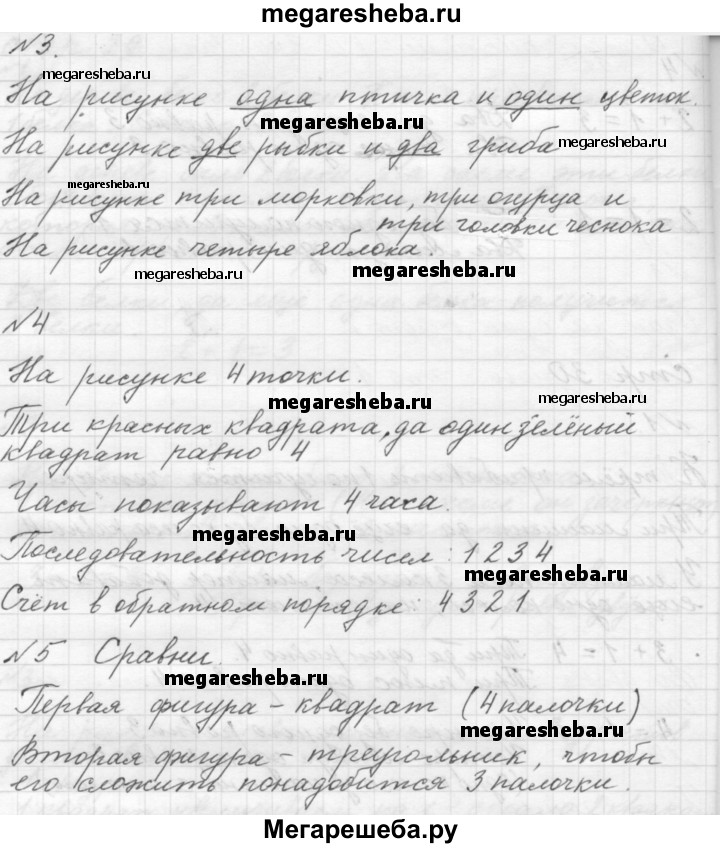 megaresheba.ru
№3.
megaresheba.ru
На рисунке одна птичка и один цветок.
megaresheba.ru
На рисунке две рыбки и два гриба
megaresheba.ru
megaresheba.ru
На рисунке три морковки, три огурца и
три головки чеснока
На рисунке четыре яблока.
megaresheba.ru
megaresheba.ru
№4
На рисунке 4 точки.
megaresheba.ru
megaresheba.ru
Три красных квадрата, да один зелёный
квадрат равно 4
Часы показывают 4 часа.
megaresheba.ru
Последовательность чисел: 1 2 3 4
megaresheba.ru
Счёт в обратном порядке: 4 3 2 1
№5 Сравни.
megaresheba.ru
Первая фигура – квадрат (4 палочки)
megaresheba.ru
Вторая фигура – треугольник, чтобы
его сложить понадобится 3 палочки.
Мегарешеба.ру